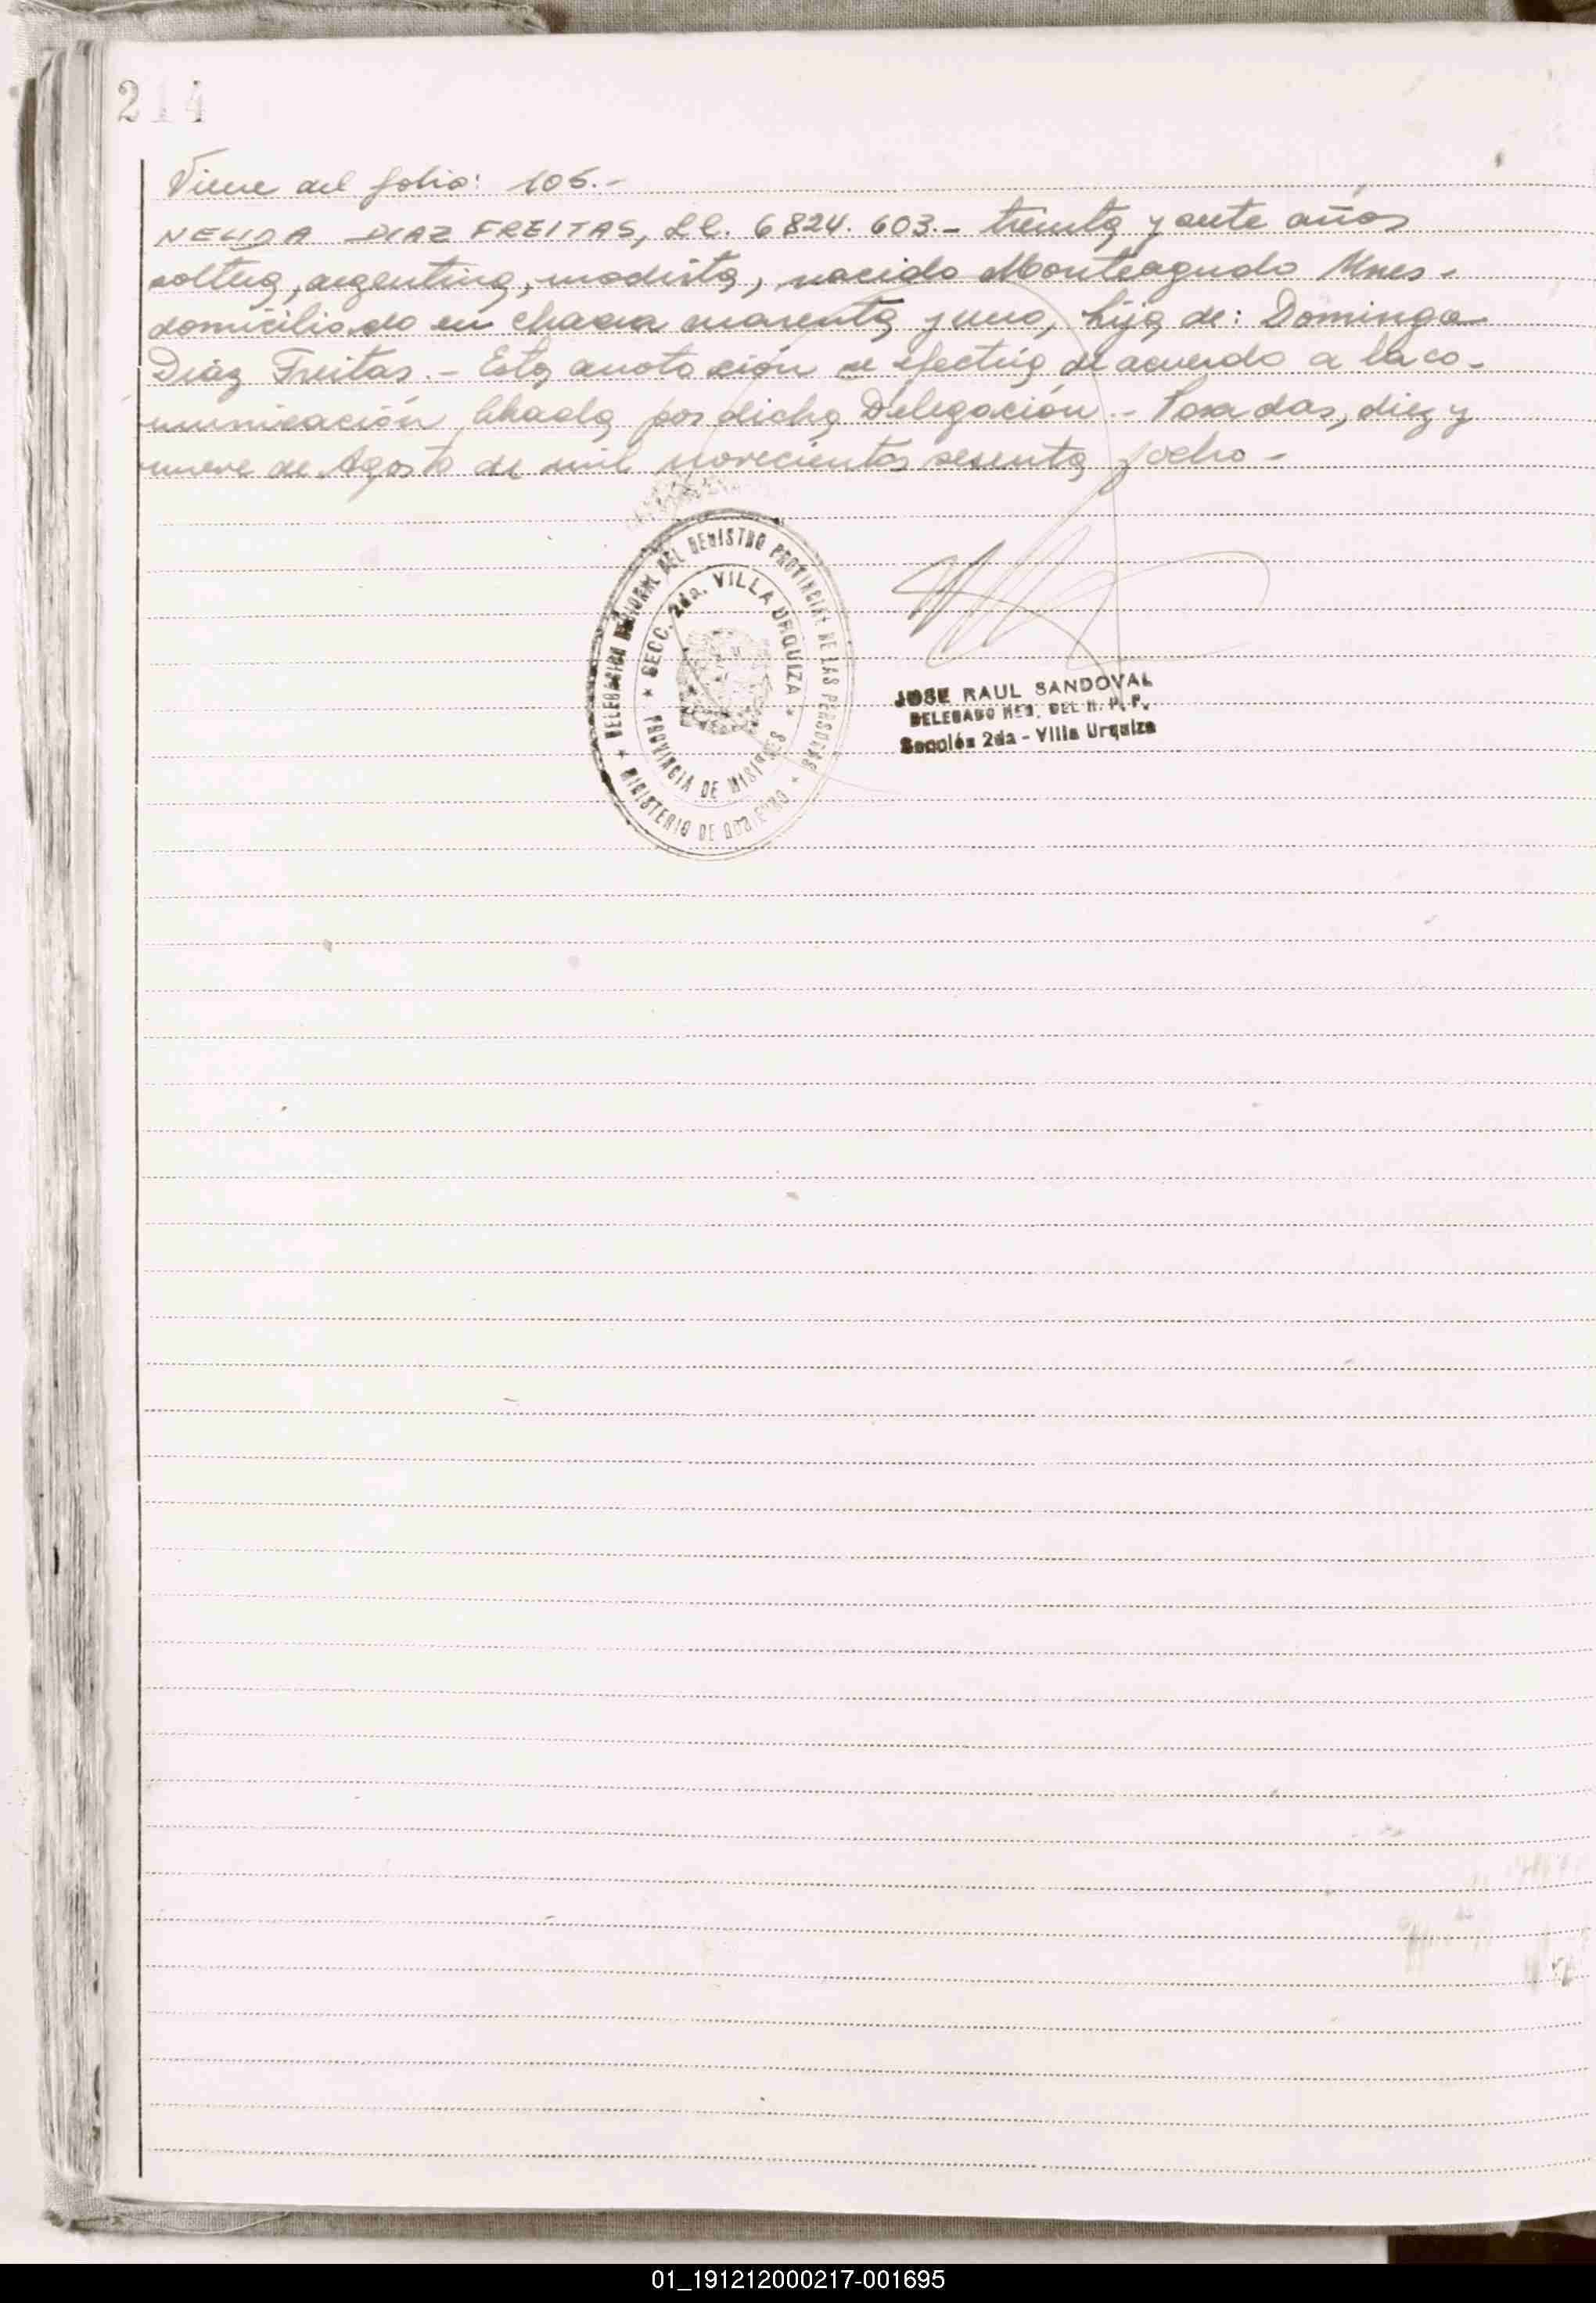 214
Viene del folio: 105.-
NELIDA DIAZ FREITAS, L.C. 6824.603.- treinta y siete años
soltera, argentina, modista, nacido Monteagudo Mnes-
domiciliado en chacra cuarenta y uno, hija de: Dominga
Díaz Freitas.- Esta anotación se efectúa de acuerdo a la co-
municación librada por dicha Delegación.- Posadas, diez y
nueve de Agosto de mil novecientos sesenta y ocho-
DELEGACION REGIONAL DEL REGISTRO PROVINCIAL DE LAS PERSONAS
★ MINISTERIO DE GOBIERNO ★
★ SECC. 2da. VILLA URQUIZA ★
PROVINCIA DE MISIONES
JOSE RAUL SANDOVAL
DELEGADO REG. DEL R. P. P.
Sección 2da - Villa Urquiza
01_191212000217-001695